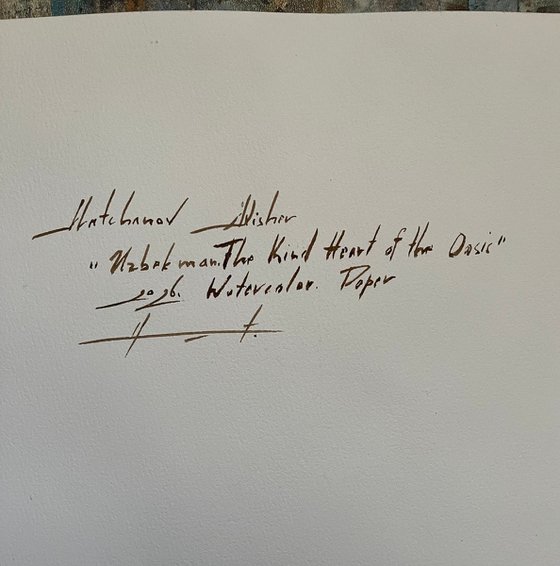 Hatchanov Alisher
"Uzbek man. The Kind Heart of the Oasis"
2026. Watercolor. Paper